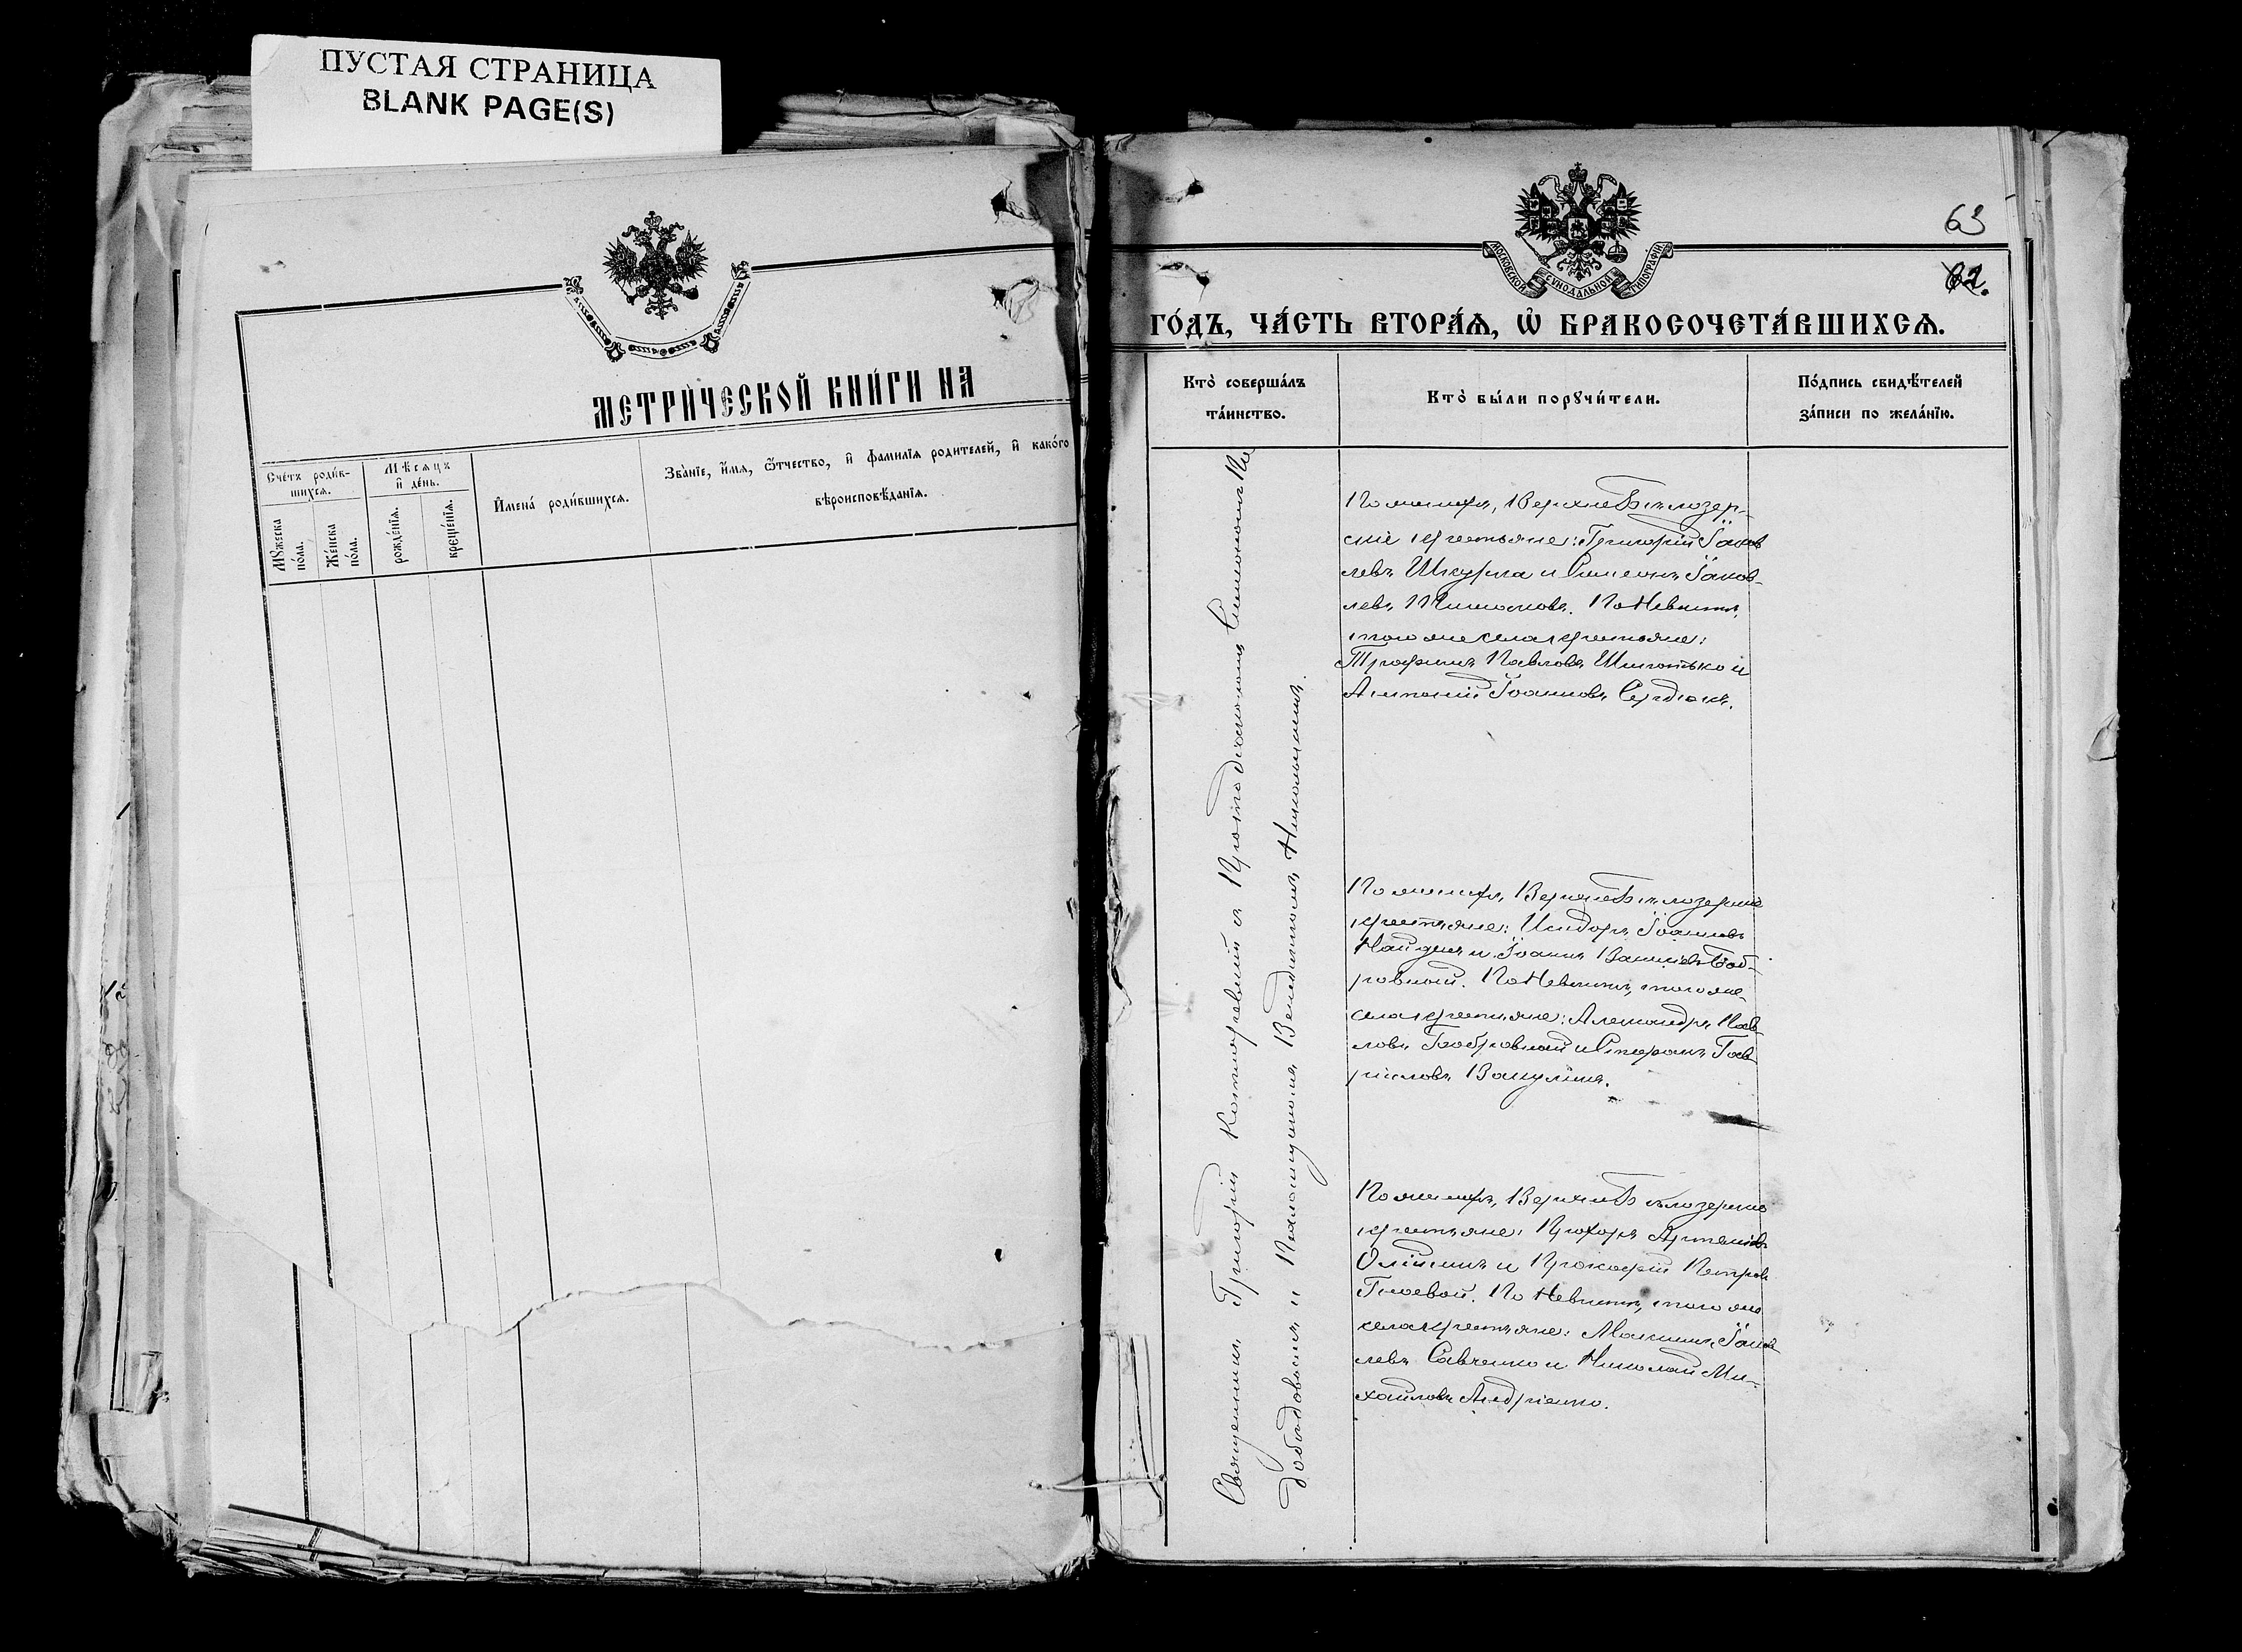 ПУСТАЯ СТРАНИЦА
BLANK PAGE(S)
МЕТРИ́ЧЕСКОЙ КНИ́ГИ НА
Сче́тъ роди́в-
шихсѧ.
Мѣ́сѧцъ
и҆ де́нь.
Мꙋ́жеска
по́ла.
Же́нска
по́ла.
рожде́нїѧ.
креще́нїѧ.
И҆мена̀ роди́вшихсѧ.
Зва̀нїе, и҆́мѧ, ѻ҆́тчество, и҆ фамилїѧ родителей, и҆ како́го
вѣроисповѣ́данїѧ.
63
62.
МОСКОВСКОЙ СѴНОДАЛЬНОЙ ТИПОГРАФІИ
ГО́ДЪ, ЧА́СТЬ ВТОРА́Ѧ, Ѡ҆ БРАКОСОЧЕТА́ВШИХСѦ.
Кто̀ соверша́лъ
та́инство.
Кто̀ бы́ли порꙋчи́тели.
По́дпись свидѣ́телей
за́писи по жела́нїю.
Священникъ Григорій съ Протодіакономъ Симеономъ
и Псаломщикомъ Венедиктомъ
По женихѣ, Верхнебѣлозер-
скіе крестьяне: Григорій Іаков
левъ Шкурка и Симеонъ Іаков-
левъ По Невѣстѣ,
того же села крестьяне:
Трофимъ Павловъ и
Антоній Іоанновъ Сердюкъ.
По женихѣ, Верхнебѣлозерскіе
крестьяне: Исидоръ Іоанновъ
и Іоаннъ Боб-
ровный. По Невѣстѣ, того же
села крестьяне: Александръ Пав-
ловъ Бобровный и Стефанъ Гав
риловъ Вакулинъ.
По женихѣ, Верхнебѣлозерскіе
крестьяне: Прохоръ Артемовъ
Олійникъ и Прокофій Петровъ
Гноевой. По Невѣстѣ, того же
села крестьяне: Максимъ Іаков
левъ Савченко и Николай Ми-
хайловъ Андріенко.